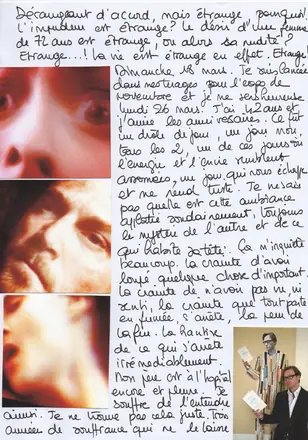 Dérangeant d'accord, mais étrange, pourquoi!
L'impudeur est étrange? Le désir d'une femme
de 72 ans est étrange, ou alors sa nudité?
Etrange...! La vie est étrange en effet. Etrange!
Dimanche 18 mars. Je suis lancée
dans mes tirages pour l'expo de
novembre et je me sens heureuse
lundi 26 mars. J'ai 42 ans et
j'aime les anniversaires. Ce fut
un drôle de jour, un jour noir
tous les 2, un de ces jours où
l'énergie et l'envie semblent
, un jour qui nous échappe
et me rend triste. Je ne sais
pas quelle est cette ambiance
soudainement, toujours
le mystère de l'autre et de ce
qui habite sa tête. Ça m'inquiète
beaucoup. La crainte d'avoir
loupé quelque chose d'important.
La crainte de n'avoir pas vu, ni
senti, la crainte que tout parte
en fumée, s'arrête, la peur de
la fin. La hantise
de ce qui s'arrête
irrémédiablement.
Mon père est à l'hôpital
encore et pleure. Je
souffre de l'entendre
ainsi. Je ne trouve pas cela juste. Trop
années de souffrance qui ne le laisse